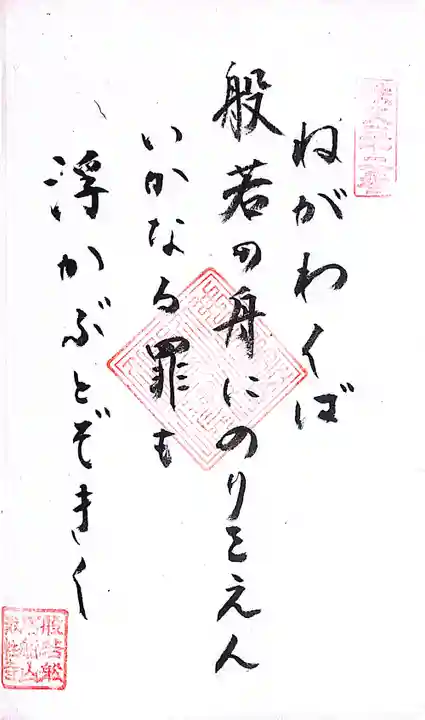 ねがわくば
般若の舟にのりこえん
いかなる罪も
浮かぶとぞきく